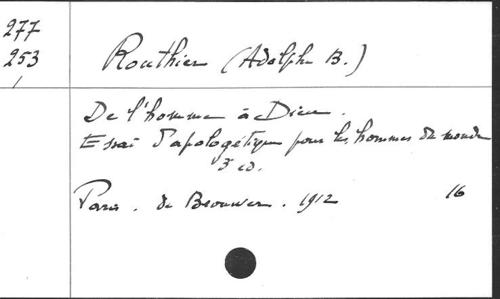 277
253
Routhier (Adolphe B.)
De l'homme à Dieu.
Essai d'apologétique pour les hommes du monde
3 éd.
Paris. de Brouwer. 1912 16